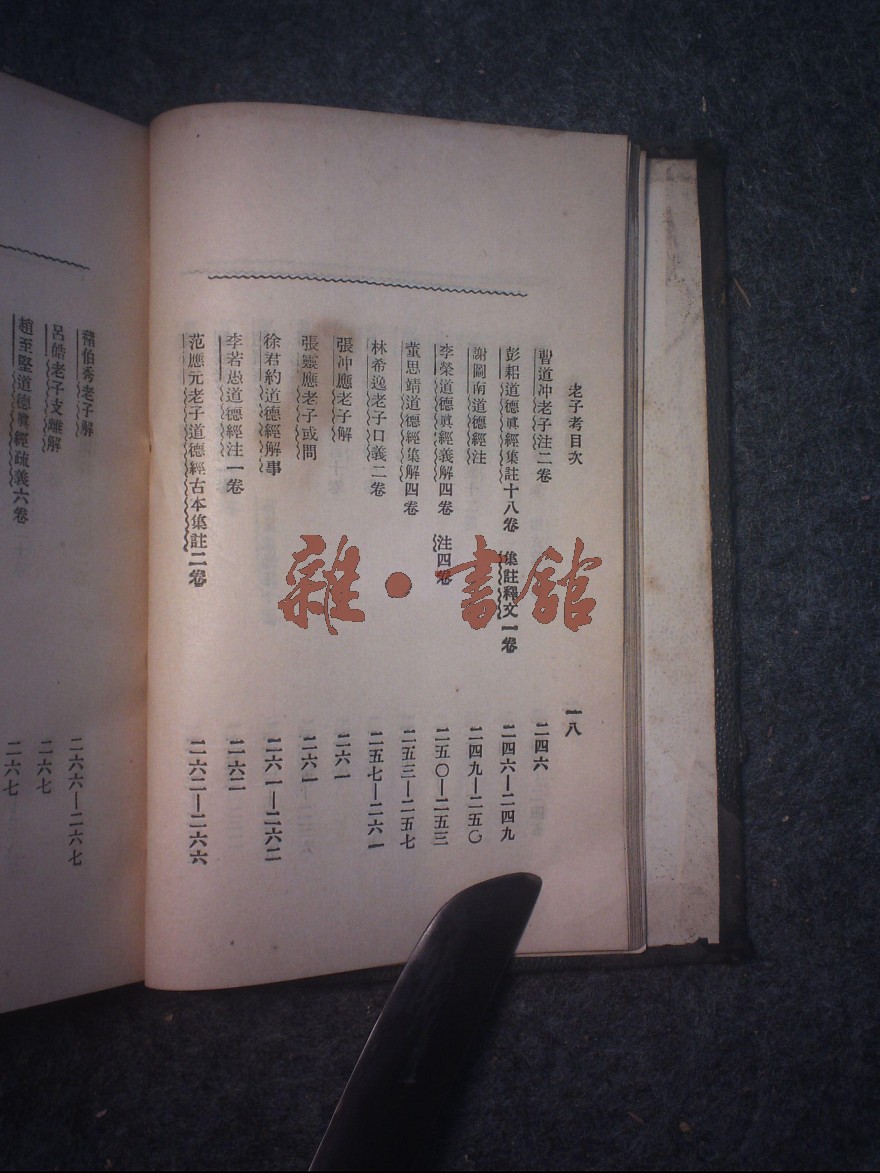 老子考目次
一八
曹道冲老子注二卷
二四六
彭耜道德眞經集註十八卷 集註釋文一卷
二四六—二四九
謝圖南道德經注
二四九—二五〇
李榮道德眞經義解四卷 注四卷
二五〇—二五三
董思靖道德經集解四卷
二五三—二五七
林希逸老子口義二卷
二五七—二六一
張冲應老子解
二六一
張靈應老子或問
二六一
徐君約道德經解事
二六一—二六二
李若愚道德經注一卷
二六二
范應元老子道德經古本集註二卷
二六二—二六六
褚伯秀老子解
二六六—二六七
呂皓老子支離解
二六七
趙至堅道德眞經疏義六卷
二六七
雜·書館